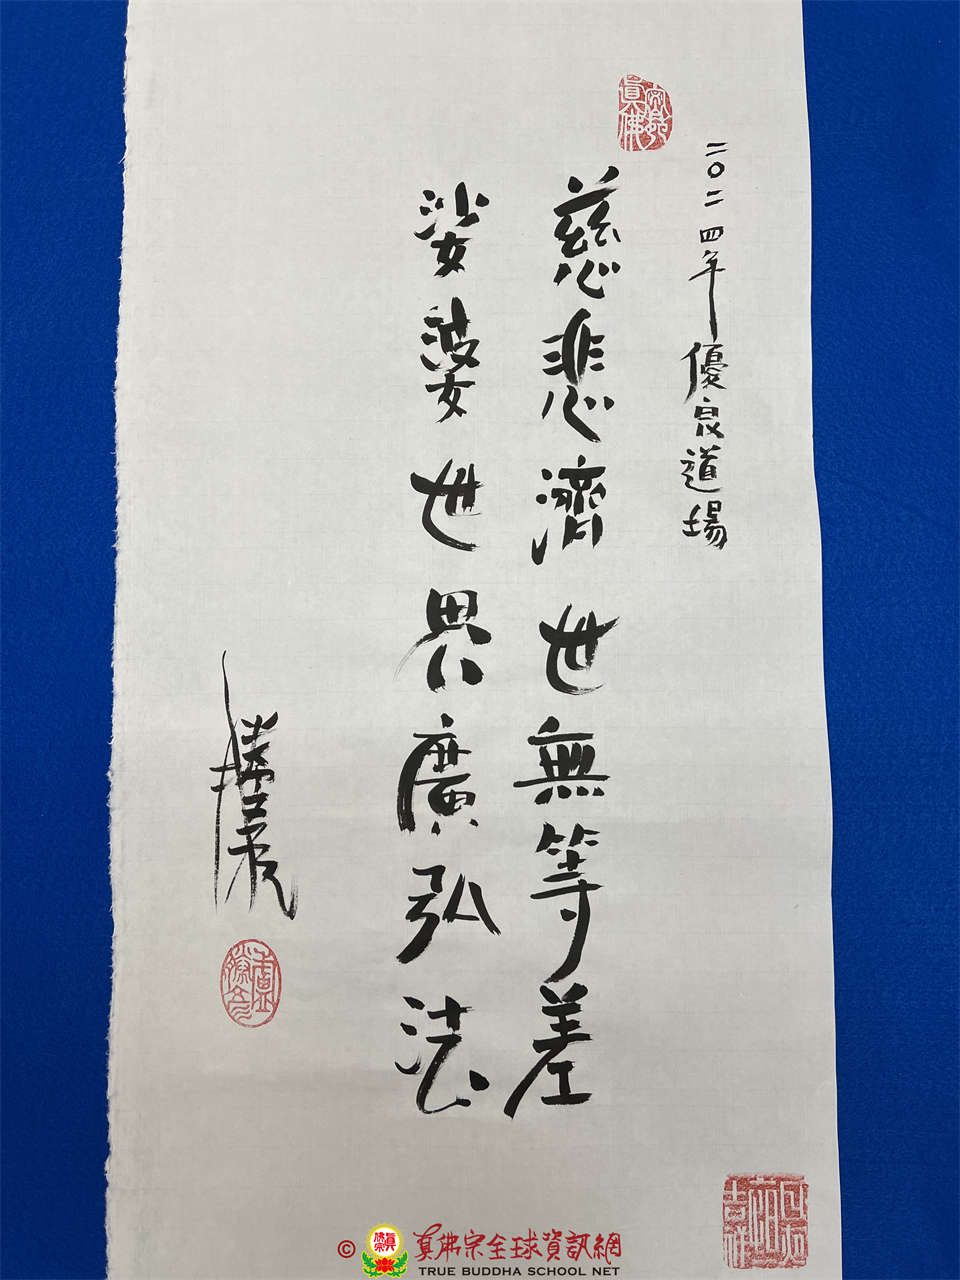 二〇二四年優良道場
慈悲濟世無等差
娑婆世界廣弘法
真佛
© 真佛宗全球資訊網
TRUE BUDDHA SCHOOL NET